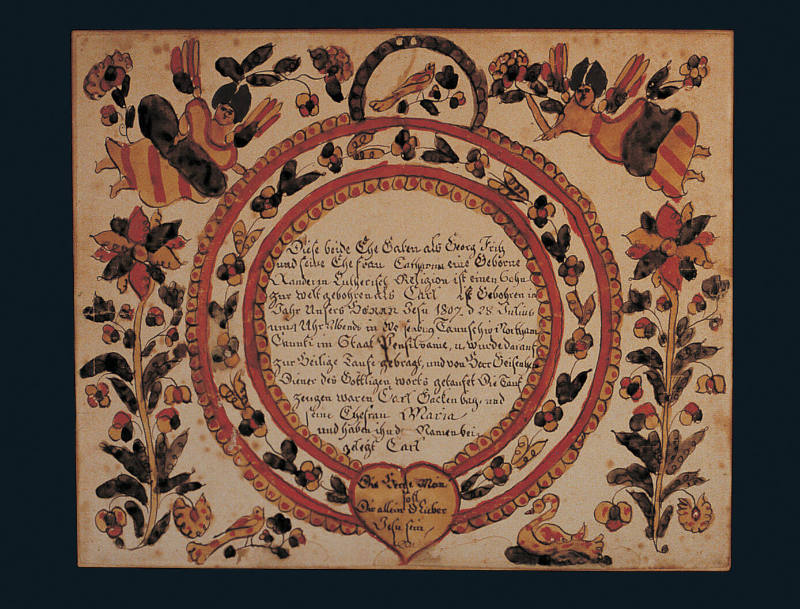 Diese beide Ehe Gaben als Georg Fritz
und seine Ehe frau Catharina eine Geborne
Luterisch Religion ist einen Sohn
zur welt gebohren als Carl ist Gebohren im
Jahr Unsers Herrn Jesu 1807 d 28 Julius
ums Uhr Abends in Taunschip Northam
Caunti im Staat Pensilvanie, u. wurde darauf
zur Heilige Taufe gebragt, und von Herr
Diener des Göttligen worts getauft Die Tauf
zeugen waren Carl und
seine Ehefrau Maria
und haben ihm d Namen bei
gelegt Carl
Die Berge Man
soll
Dir allein O Lieber
Jesu sein